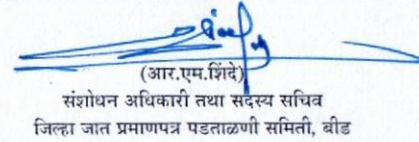 (आर.एम.शिंदे)
संशोधन अधिकारी तथा सदस्य सचिव
जिल्हा जात प्रमाणपत्र पडताळणी समिती, बीड